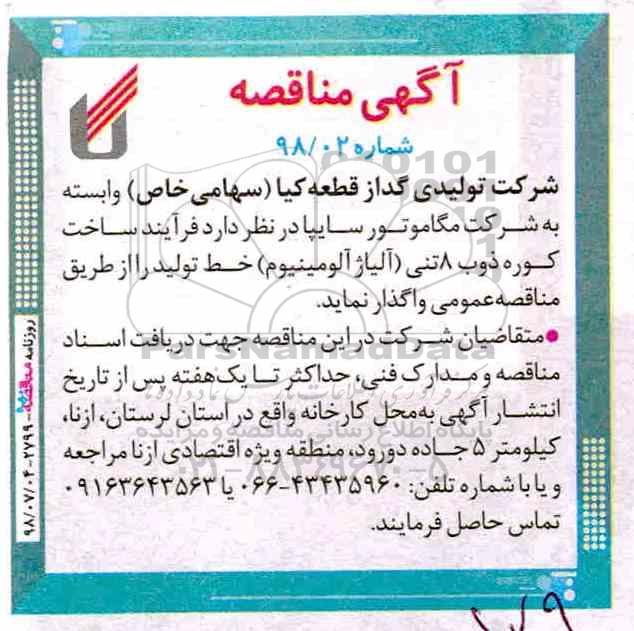 آگهی مناقصه
شماره ۹۸/۰۲
شرکت تولیدی گداز قطعه کیا (سهامی خاص) وابسته
به شرکت مگاموتور سایپا در نظر دارد فرآیند ساخت
کوره ذوب ۸تنی (آلیاژ آلومینیوم) خط تولید را از طریق
مناقصه عمومی واگذار نماید.
•متقاضیان شرکت در این مناقصه جهت دریافت اسناد
مناقصه و مدارک فنی، حداکثر تا یک هفته پس از تاریخ
انتشار آگهی به محل کارخانه واقع در استان لرستان، ازنا،
کیلومتر ۵ جاده دورود، منطقه ویژه اقتصادی ازنا مراجعه
و یا با شماره تلفن: ۴۳۴۳۵۹۶۰-۰۶۶ یا ۰۹۱۶۳۶۴۳۵۶۳
تماس حاصل فرمایند.
روزنامه مناقصه - ۲۷۹۹ - ۹۸/۰۷/۰۴
ParsNamadData
پایگاه اطلاع رسانی مناقصه و مزایده
۰۲۱-۸۸۳۴۹۶۷۰-۵